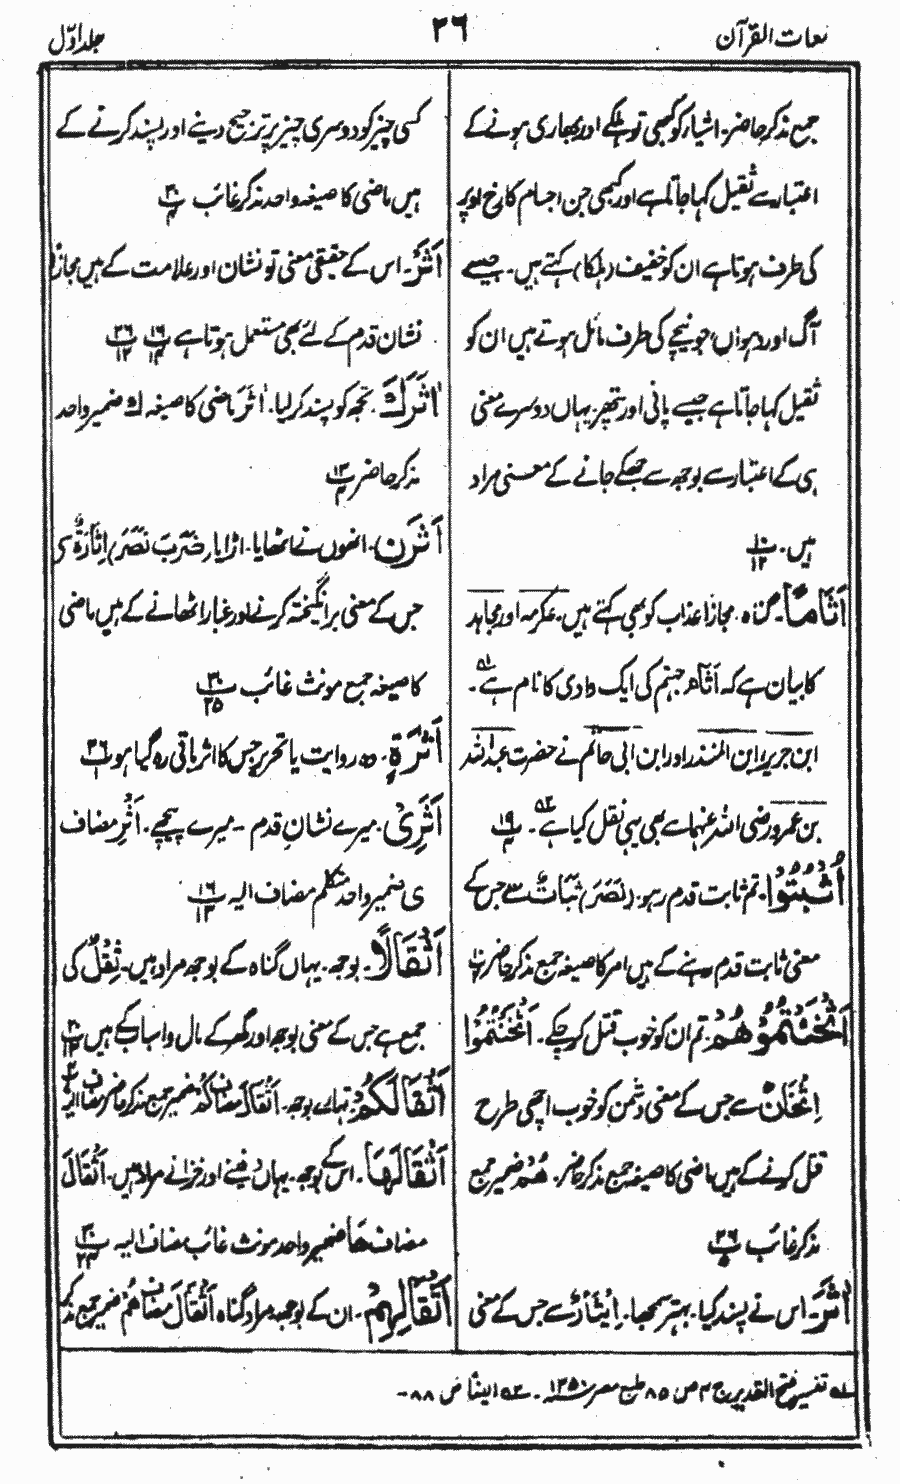 لغات القرآن
۳۶
جلد اوّل
جمع مذکر حاضر۔ اشیاء کو کبھی تو ہلکے اور بھاری ہونے کے
اعتبار سے ثقیل کہا جاتا ہے اور کبھی جن اجسام کا رخ اوپر
کی طرف ہوتا ہے ان کو خفیف (ہلکا) کہتے ہیں۔ جیسے
آگ اور دہواں، جو نیچے کی طرف مائل ہوتے ہیں ان کو
ثقیل کہا جاتا ہے جیسے پانی اور پتھر یہاں دوسرے معنی
ہی کے اعتبار سے بوجھ سے جھکے جانے کے معنی مراد
ہیں۔ ۱۰/۱۲
اَثَامًا۔ گناہ، مجازًا عذاب کو بھی کہتے ہیں۔ عکرمہ اور مجاہد
کا بیان ہے کہ اَثَام جہنم کی ایک وادی کا نام ہے لہ۔
ابن جریر، ابن المنذر اور ابن ابی حاتم نے حضرت عبداللہ
بن عمرو رضی اللہ عنہما سے بھی یہی نقل کیا ہے ۲ہ۔ ۱۹/۴
اُثْبُتُوْا۔ تم ثابت قدم رہو۔ (نَصَرَ) ثَبَاتٌ سے جس کے
معنی ثابت قدم رہنے کے ہیں امر کا صیغہ جمع مذکر حاضر ۱۰/۲
اَثْخَنْتُمُوْهُمْ۔ تم ان کو خوب قتل کر چکے۔ اَثْخَنْتُمُوْا
اِثْخَانٌ سے جس کے معنی دشمن کو خوب اچھی طرح
قتل کرنے کے ہیں ماضی کا صیغہ جمع مذکر حاضر۔ هُمْ ضمیر جمع
مذکر غائب ۲۶/۵
اٰثَرَ۔ اس نے پسند کیا۔ بہتر سمجھا۔ اِیْثَارٌ سے جس کے معنی
کسی چیز کو دوسری چیز پر ترجیح دینے اور پسند کرنے کے
ہیں ماضی کا صیغہ واحد مذکر غائب ۳۰/۴
اَثَرٌ۔ اس کے حقیقی معنی تو نشان اور علامت کے ہیں مجازًا
نشان قدم کے لئے بھی مستعمل ہوتا ہے ۱۶/۱۴ ۲۶/۱۲
اٰثَرَكَ۔ تجھ کو پسند کر لیا۔ اٰثَرَ ماضی کا صیغہ ك ضمیر واحد
مذکر حاضر ۱۳/۴
اَثَرْنَ۔ انھوں نے اٹھایا۔ اڑایا (ضَرَبَ نَصَرَ) اِثَارَةٌ سے
جس کے معنی برانگیختہ کرنے اور غبار اٹھانے کے ہیں ماضی
کا صیغہ جمع مونث غائب ۳۰/۲۵
اَثٰرَةٍ۔ وہ روایت یا تحریر جس کا اثر باقی رہ گیا ہو ۲۶/۱
اَثَرِیْ۔ میرے نشانِ قدم ۔ میرے پیچھے۔ اَثَرِ مضاف
ی ضمیر واحد متکلم مضاف الیہ ۱۶/۱۳
اَثْقَالًا۔ بوجھ۔ یہاں گناہ کے بوجھ مراد ہیں۔ ثِقْلٌ کی
جمع ہے جس کے معنی بوجھ اور گھر کے مال و اسباب کے ہیں ۲۰/۱۳
اَثْقَالَكُمْ۔ تمہارے بوجھ۔ اَثْقَالَ مضاف كُمْ ضمیر جمع مذکر حاضر مضاف الیہ
اَثْقَالَهَا۔ اس کے بوجھ۔ یہاں دفینے اور خزانے مراد ہیں۔ اَثْقَالَ
مضاف هَا ضمیر واحد مونث غائب مضاف الیہ ۳۰/۲۴
اَثْقَالِهِمْ۔ ان کے بوجھ مراد گناہ اَثْقَالَ مضاف هُمْ ضمیر جمع مذکر
لہ تفسیر فتح القدیر ج ۴ ص ۸۵ طبع مصر ۱۳۵۰ھ ۔ ۲ہ ایضًا ص ۸۸۔